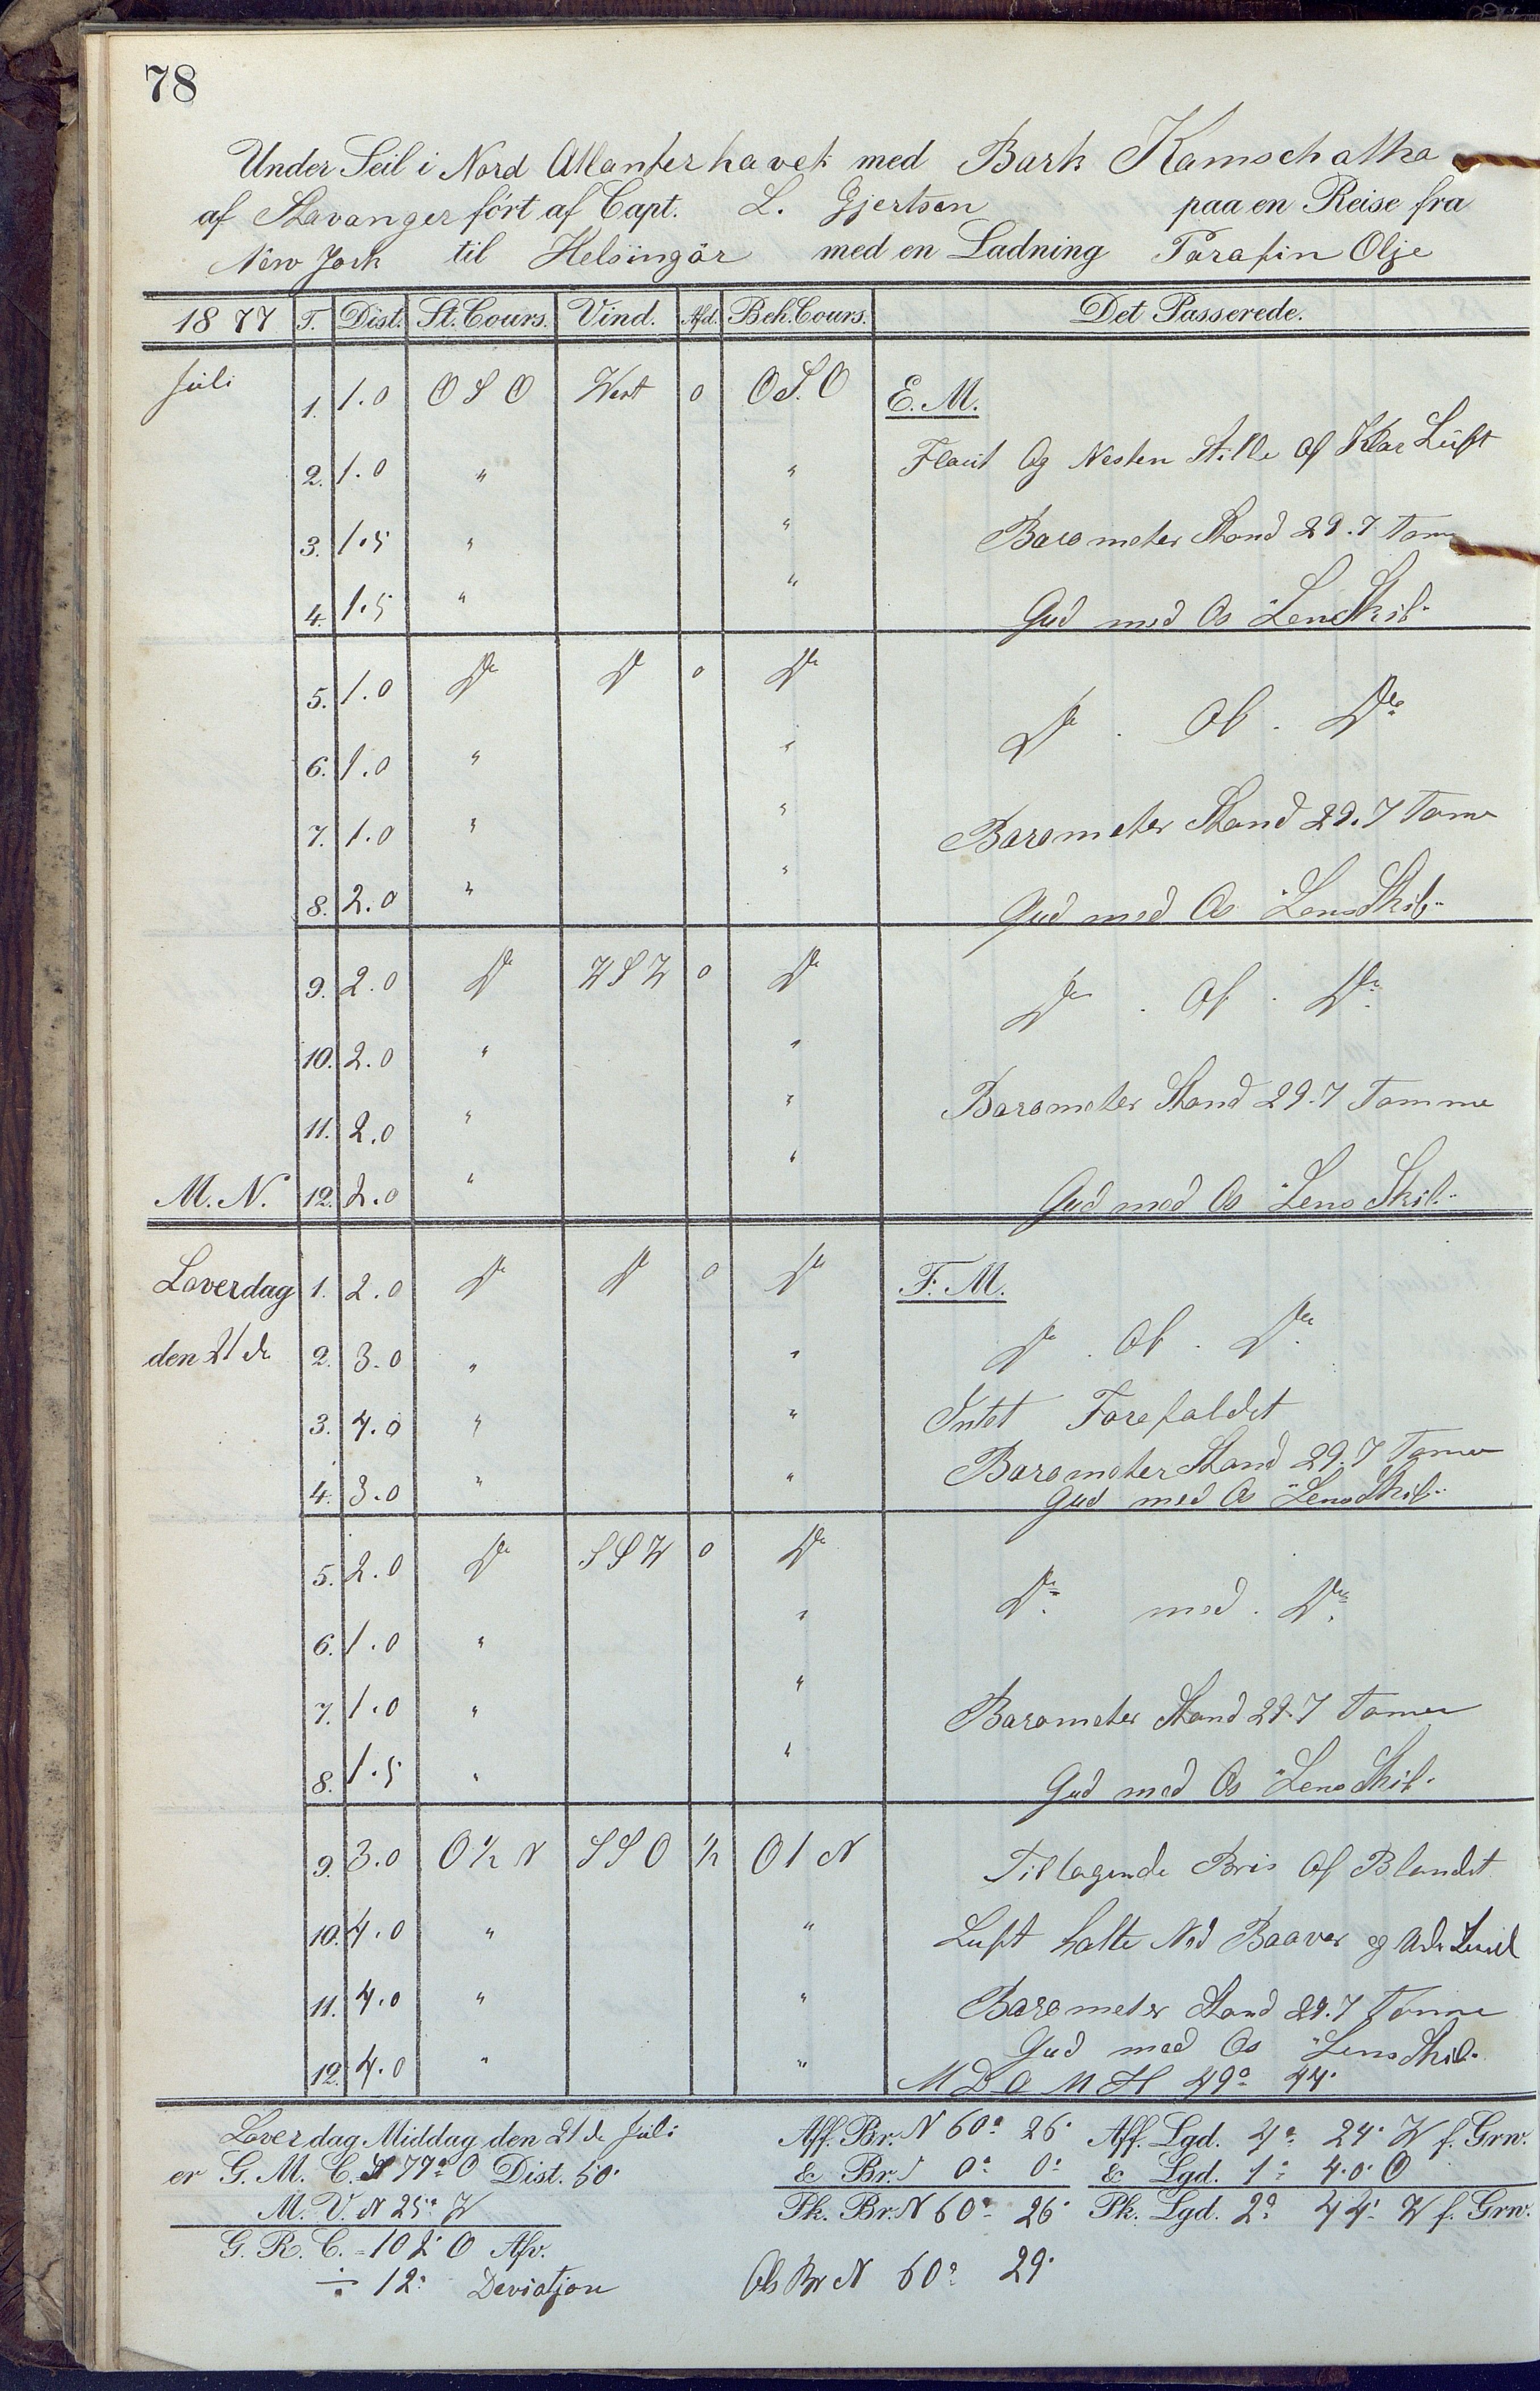 78
Under Seil i Nord Atlanterhavet med Bark Kamschatka
af Stavanger ført af Capt. L. Gjertsen paa en Reise fra
New York til Helsingör med en Ladning Parafin Olje
1877 T. Dist. St. Cours. Vind. Afd. Beh. Cours. Det Passerede.
Juli 1. 1.0 O S O West 0 O S. O E. M.
2. 1.0 " " Flaut Og Nesten Stille Af Klar Lüft
3. 1.5 " " Barometer Stand 29.7 Tom
4. 1.5 " " Gud med Os Lens Skib"
5. 1.0 Do Do 0 Do Do . Af . Do
6. 1.0 " "
7. 1.0 " " Barometer Stand 29.7 Tome
8. 2.0 " " Gud med Os "Lens Skib"
9. 2.0 Do W S W 0 Do Do . Af . Do
10. 2.0 " "
11. 2.0 " " Barometer Stand 29.7 Tomme
M. N. 12. 2.0 " " Gud med Os "Lens Skib"
Loverdag 1. 2.0 Do Do 0 Do F. M.
den 21 de 2. 3.0 " " Do . Af . Do
3. 4.0 " " Intet Forefaldet
4. 3.0 " " Barometer Stand 29.7 Tomer
Gud med Os "Lens Skib"
5. 2.0 Do S S W 0 Do Do med . Do
6. 1.0 " "
7. 1.0 " " Barometer Stand 29.7 Tomer
8. 1.5 " " Gud med Os "Lens Skib"
9. 3.0 O ½ N S S O ½ O 1 N Tiltagende Bris Af Blandet
10. 4.0 " " Luft halte Ned Baaver og
11. 4.0 " " Barometer Stand 29.7 Tomme
Gud med Os "Lens Skib"
12. 4.0 " " M D O M H 49° 44'
Loverdag Middag den 21 de Juli Aff. Br. N 60° 26' Aff. Lgd. 4° 24' W f. Grw.
er G. M. C. S 77° O Dist. 50' & Br. 0° 0' & Lgd. 1° 40' O
M. V. N 25° W Pk. Br. N 60° 26' Pk. Lgd. 2° 44' W f. Grw.
G. R. C. = 102° O Afv.
÷ 12° Deviatjon Obs Br N 60° 29'